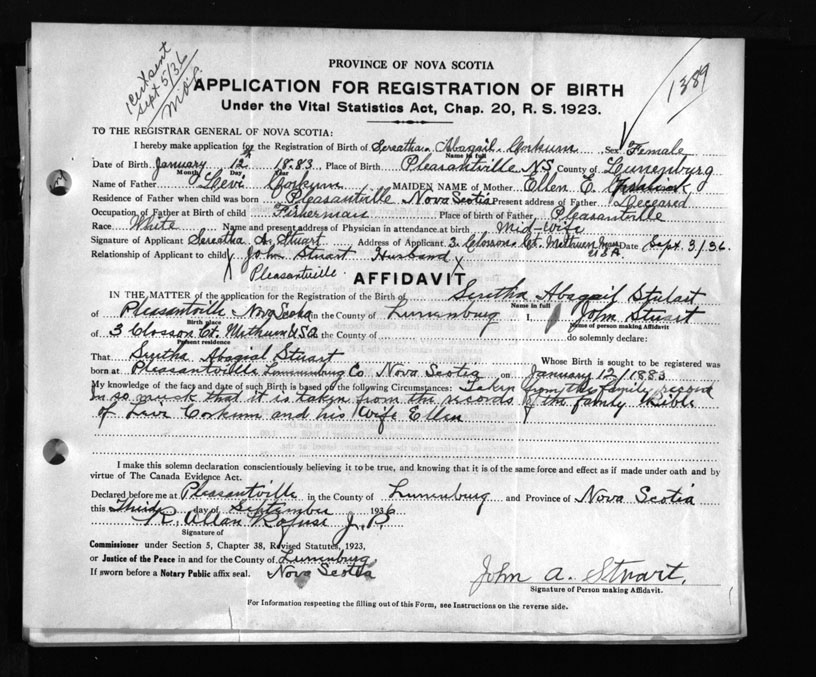 Cert sent
Sept 5/36
1389
PROVINCE OF NOVA SCOTIA
APPLICATION FOR REGISTRATION OF BIRTH
Under the Vital Statistics Act, Chap. 20, R. S. 1923.
TO THE REGISTRAR GENERAL OF NOVA SCOTIA:
I hereby make application for the Registration of Birth of Sereatha Abagail Corkum Sex Female
Name in full
Date of Birth January 12th 1883 Place of Birth Pleasantville N.S County of Lunenburg
Month Day Year
Name of Father Levi Corkum MAIDEN NAME of Mother Ellen E.
Residence of Father when child was born Pleasantville Nova Scotia Present address of Father Deceased
Occupation of Father at Birth of child Fisherman Place of birth of Father Pleasantville
Race White Name and present address of Physician in attendance at birth Mid-wife
Signature of Applicant Sereatha A. Stuart Address of Applicant 3 Closson Ct. Methuen Mass USA Date Sept. 3/36.
Relationship of Applicant to child John Stuart Husband
Pleasantville.
AFFIDAVIT
IN THE MATTER of the application for the Registration of the Birth of Sertha Abagail Stuart
Name in full
of Pleasantville Nova Scotia in the County of Lunenburg I, John Stuart
Birth place Name of person making Affidavit
of 3 Closson Ct. Methuen USA in the County of do solemnly declare:
Present residence
That Sertha Abagial Stuart Whose Birth is sought to be registered was
born at Pleasantville Lunenburg Co Nova Scotia on January 12/1883
My knowledge of the fact and date of such Birth is based on the following Circumstances: Taken from the family record
in so much that it is taken from the records of the family bible
of Levi Corkum and his Wife Ellen
I make this solemn declaration conscientiously believing it to be true, and knowing that it is of the same force and effect as if made under oath and by
virtue of The Canada Evidence Act.
Declared before me at Pleasantville in the County of Lunenburg and Province of Nova Scotia
this Third day of September 1936
R. Allan Rafuse J.P.
Signature of
Commissioner under Section 5, Chapter 38, Revised Statutes, 1923,
or Justice of the Peace in and for the County of Lunenburg
If sworn before a Notary Public affix seal. Nova Scotia
John A. Stuart.
Signature of Person making Affidavit.
For Information respecting the filling out of this Form, see Instructions on the reverse side.